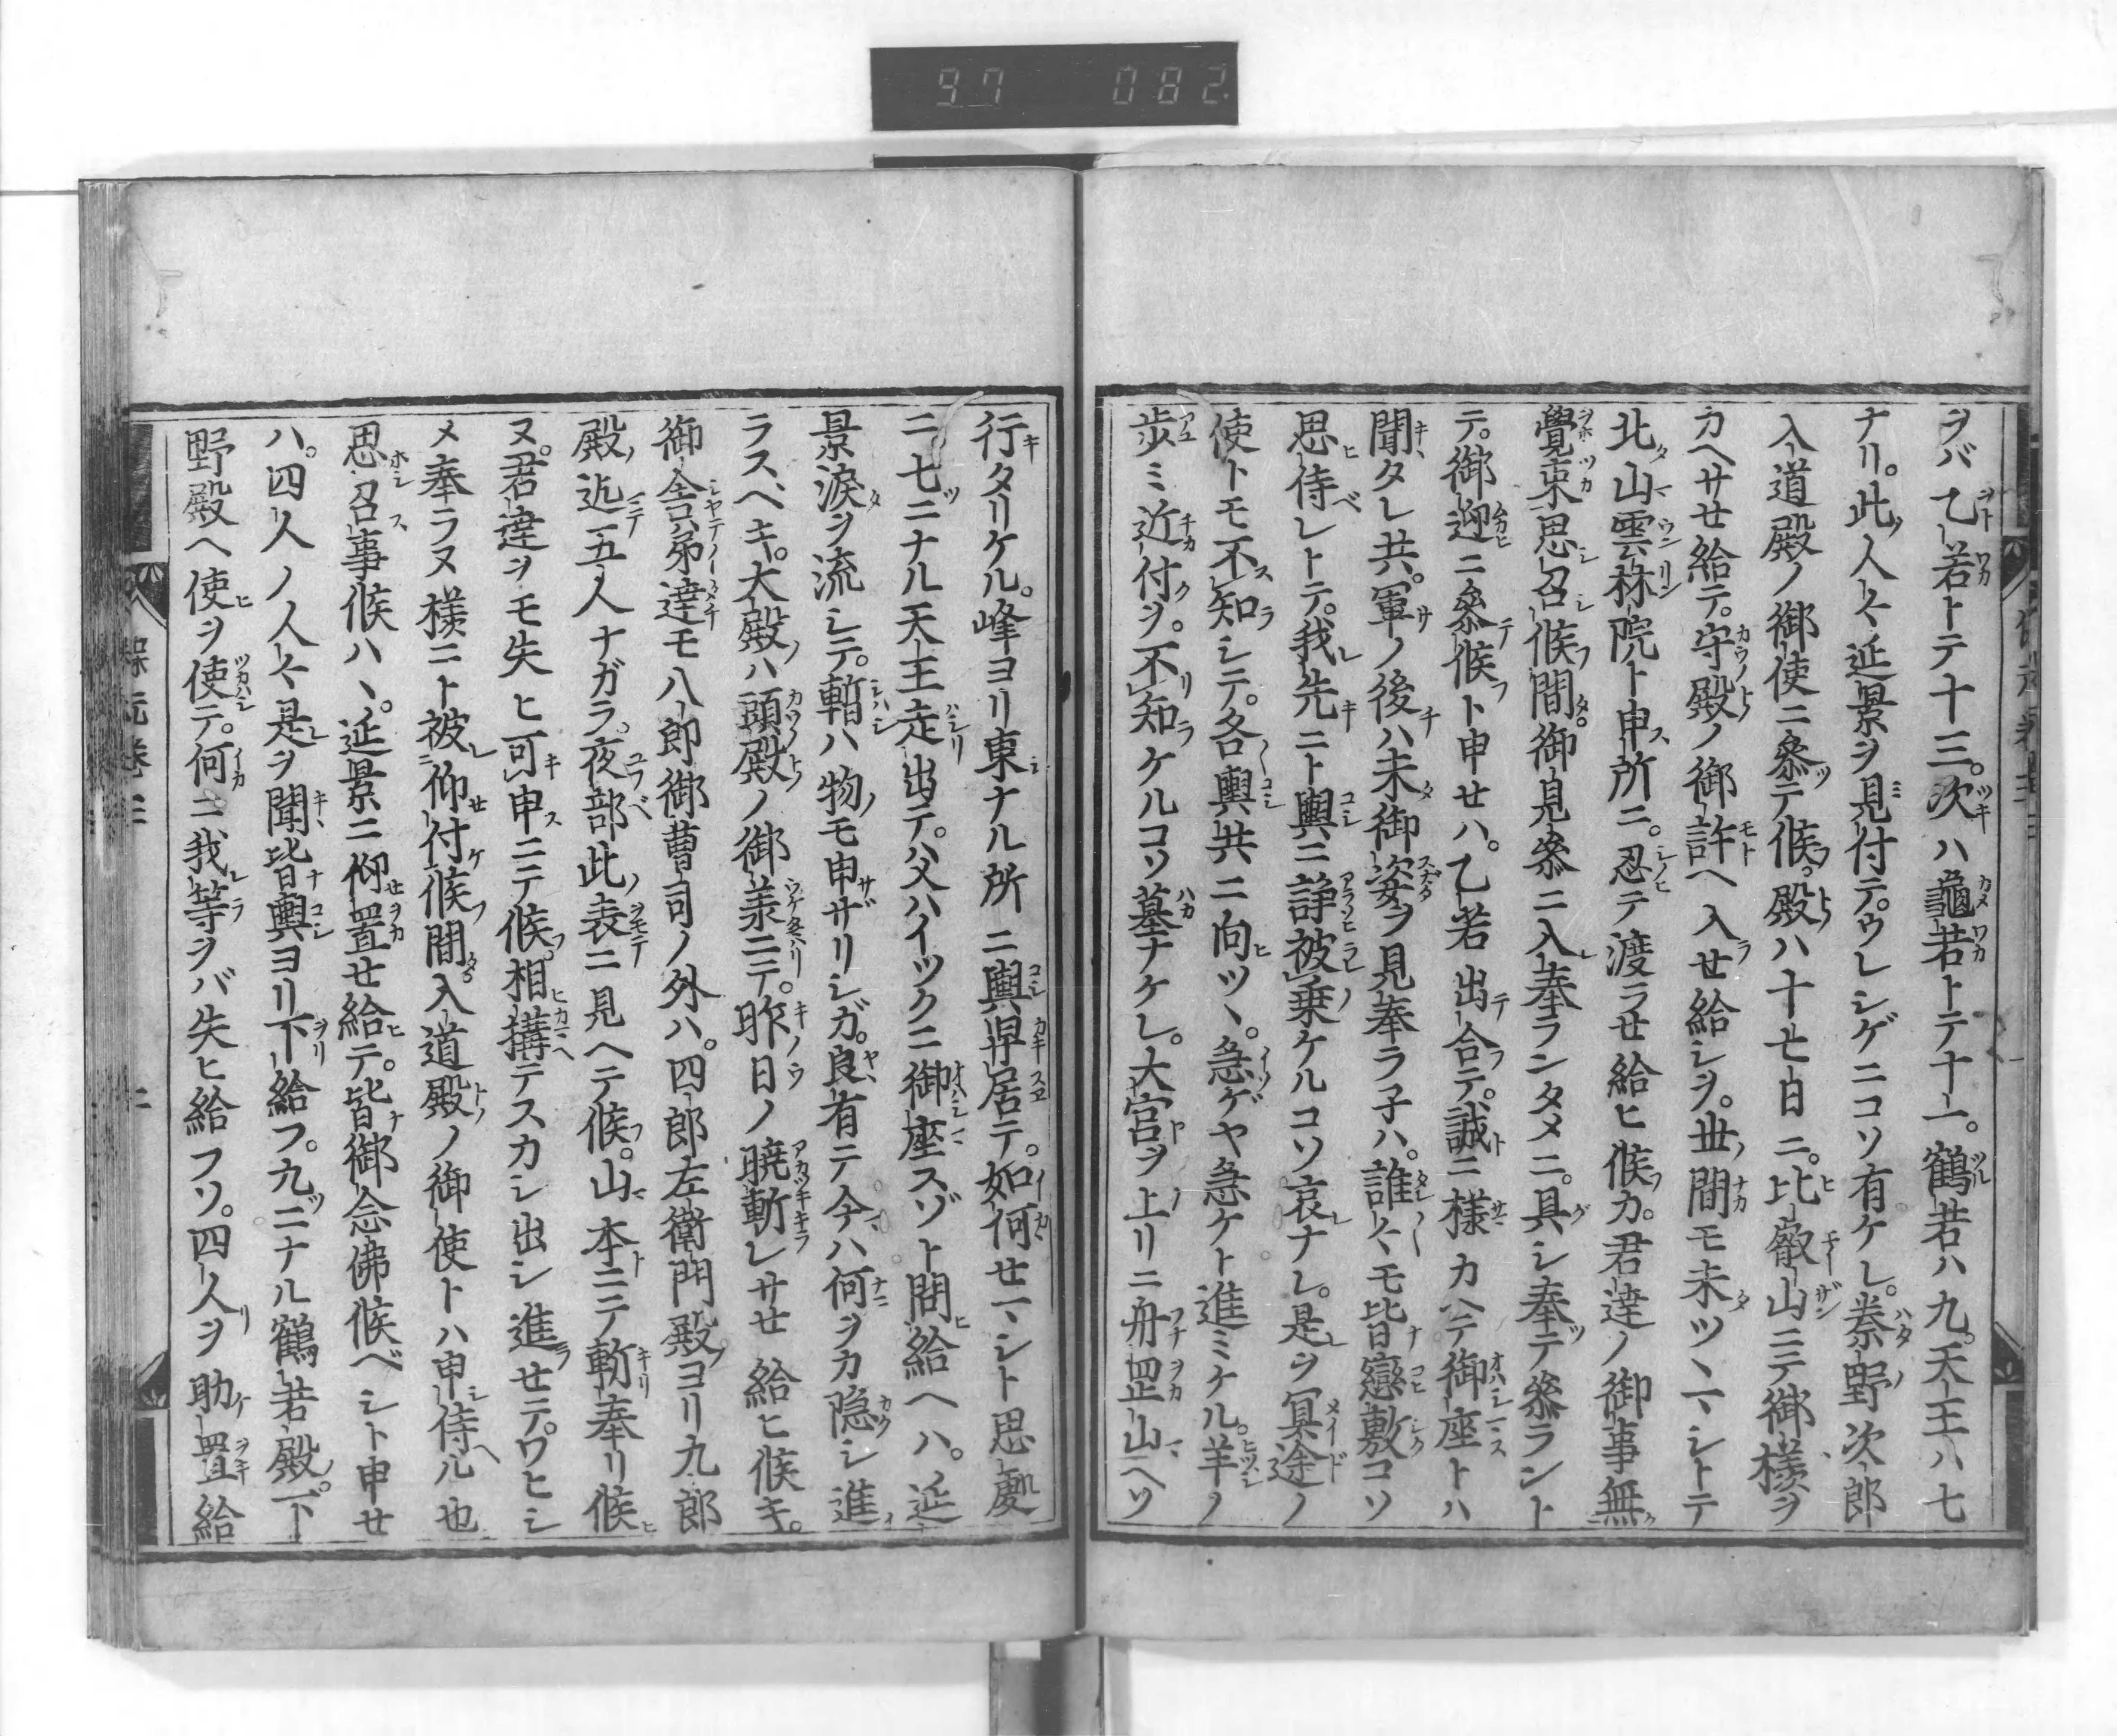 97 082
ヲバ乙若トテ十三。次ハ龜若トテ十一。鶴若ハ九。天王ハ七
ナリ。此人々延景ヲ見付テ。ウレシゲニコソ有ケレ。秦野次郎
入道殿ノ御使ニ參テ候。殿ハ十七日ニ。比叡山ニテ御様ヲ
カヘサせ給テ。守殿ノ御許ヘ入せ給シヲ。世間モ未ツヽマシトテ
北山雲林院ト申所ニ。忍テ渡ラせ給ヒ候カ。君達ノ御事無
覺束思召候間。御見參ニ入奉ランタメニ。具シ奉テ參ラント
テ。御迎ニ參候ト申せハ。乙若出合テ。誠ニ様カヘテ御座トハ
聞タレ共。軍ノ後ハ未御姿ヲ見奉ラ子ハ。誰々モ皆戀敷コソ
思侍レトテ。我先ニト輿ニ諍被乗ケルコソ哀ナレ。是ヲ冥途ノ
使トモ不知シテ。各輿共ニ向ツヽ。急ゲヤ急ケト進ミケル。羊ノ
歩ミ近付ヲ。不知ケルコソ墓ナケレ。大宮ヲ上リニ舟罡山ヘツ
行タリケル。峰ヨリ東ナル所ニ輿舁居テ。如何せマシト思慮
ニ。七ニナル天王走出テ。父ハイツクニ御座スゾト問給ヘハ。延
景涙ヲ流シテ。暫ハ物モ申サザリシガ。良有テ今ハ何ヲカ隠シ進
ラスヘキ。大殿ハ頭殿ノ御羕ニテ。昨日ノ曉斬レサせ給ヒ候キ。
御舎弟達モ八郎御曹司ノ外ハ。四郎左衛門殿ヨリ九郎
殿迠五人ナガラ。夜部此表ニ見ヘテ候。山本ニテ斬奉リ候
ヌ。君達ヲモ失ヒ可申ニテ候。相搆テスカシ出シ進せテ。ワヒシ
メ奉ラヌ様ニト被仰付候間。入道殿ノ御使トハ申侍ル也
思召事候ハヽ。延景ニ仰置せ給テ。皆御念佛候ベシト申せ
ハ。四人ノ人々是ヲ聞皆輿ヨリ下給フ。九ニナル鶴若殿。下
野殿ヘ使ヲ使テ。何ニ我等ヲバ失ヒ給フソ。四人ヲ助置給